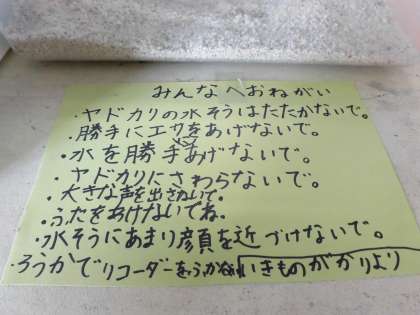 みんなへおねがい
・ヤドカリの水そうはたたかないで。
・勝手にエサをあげないで。
・水を勝手にあげないで。
・ヤドカリにさわらないで。
・大きな声を出さないで。
・ふたをあけないでね。
・水そうにあまり顔を近づけないで。
・ろうかでリコーダーをふかない
いきものがかりより